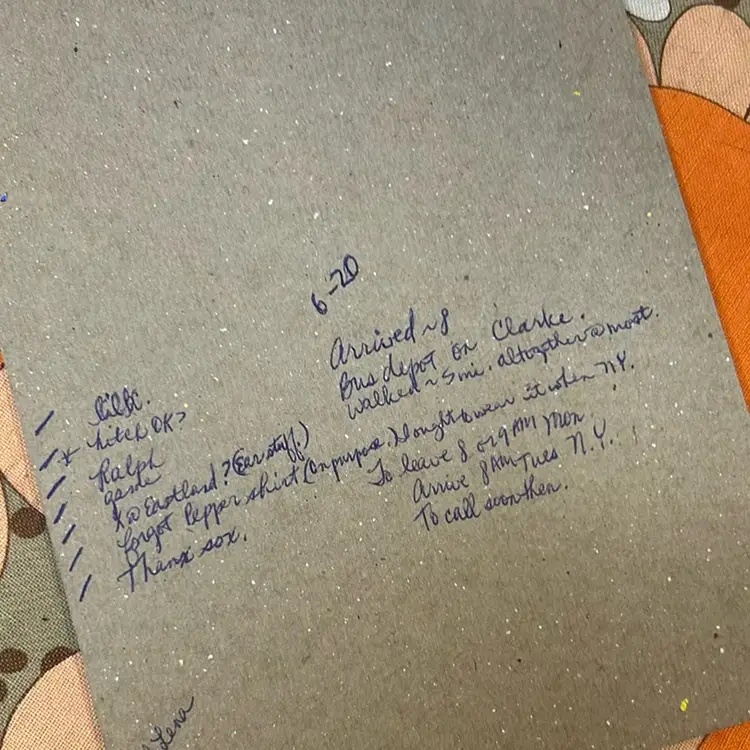 6-20
Arrived ~ 8
Bus depot on Clarke.
Walked ~ 5 mi. altogether @ most.
/ 
/ * hitch OK?
/ Ralph
/ game
/ X @ Eastland? (Ear stuff.)
/ forgot Pepper shirt (on purpose.) ought to wear it when N.Y.
/ Thanx sox.
To leave 8 or 9 AM Mon.
Arrive 8 AM Tues N.Y.
To call soon then.
Lena